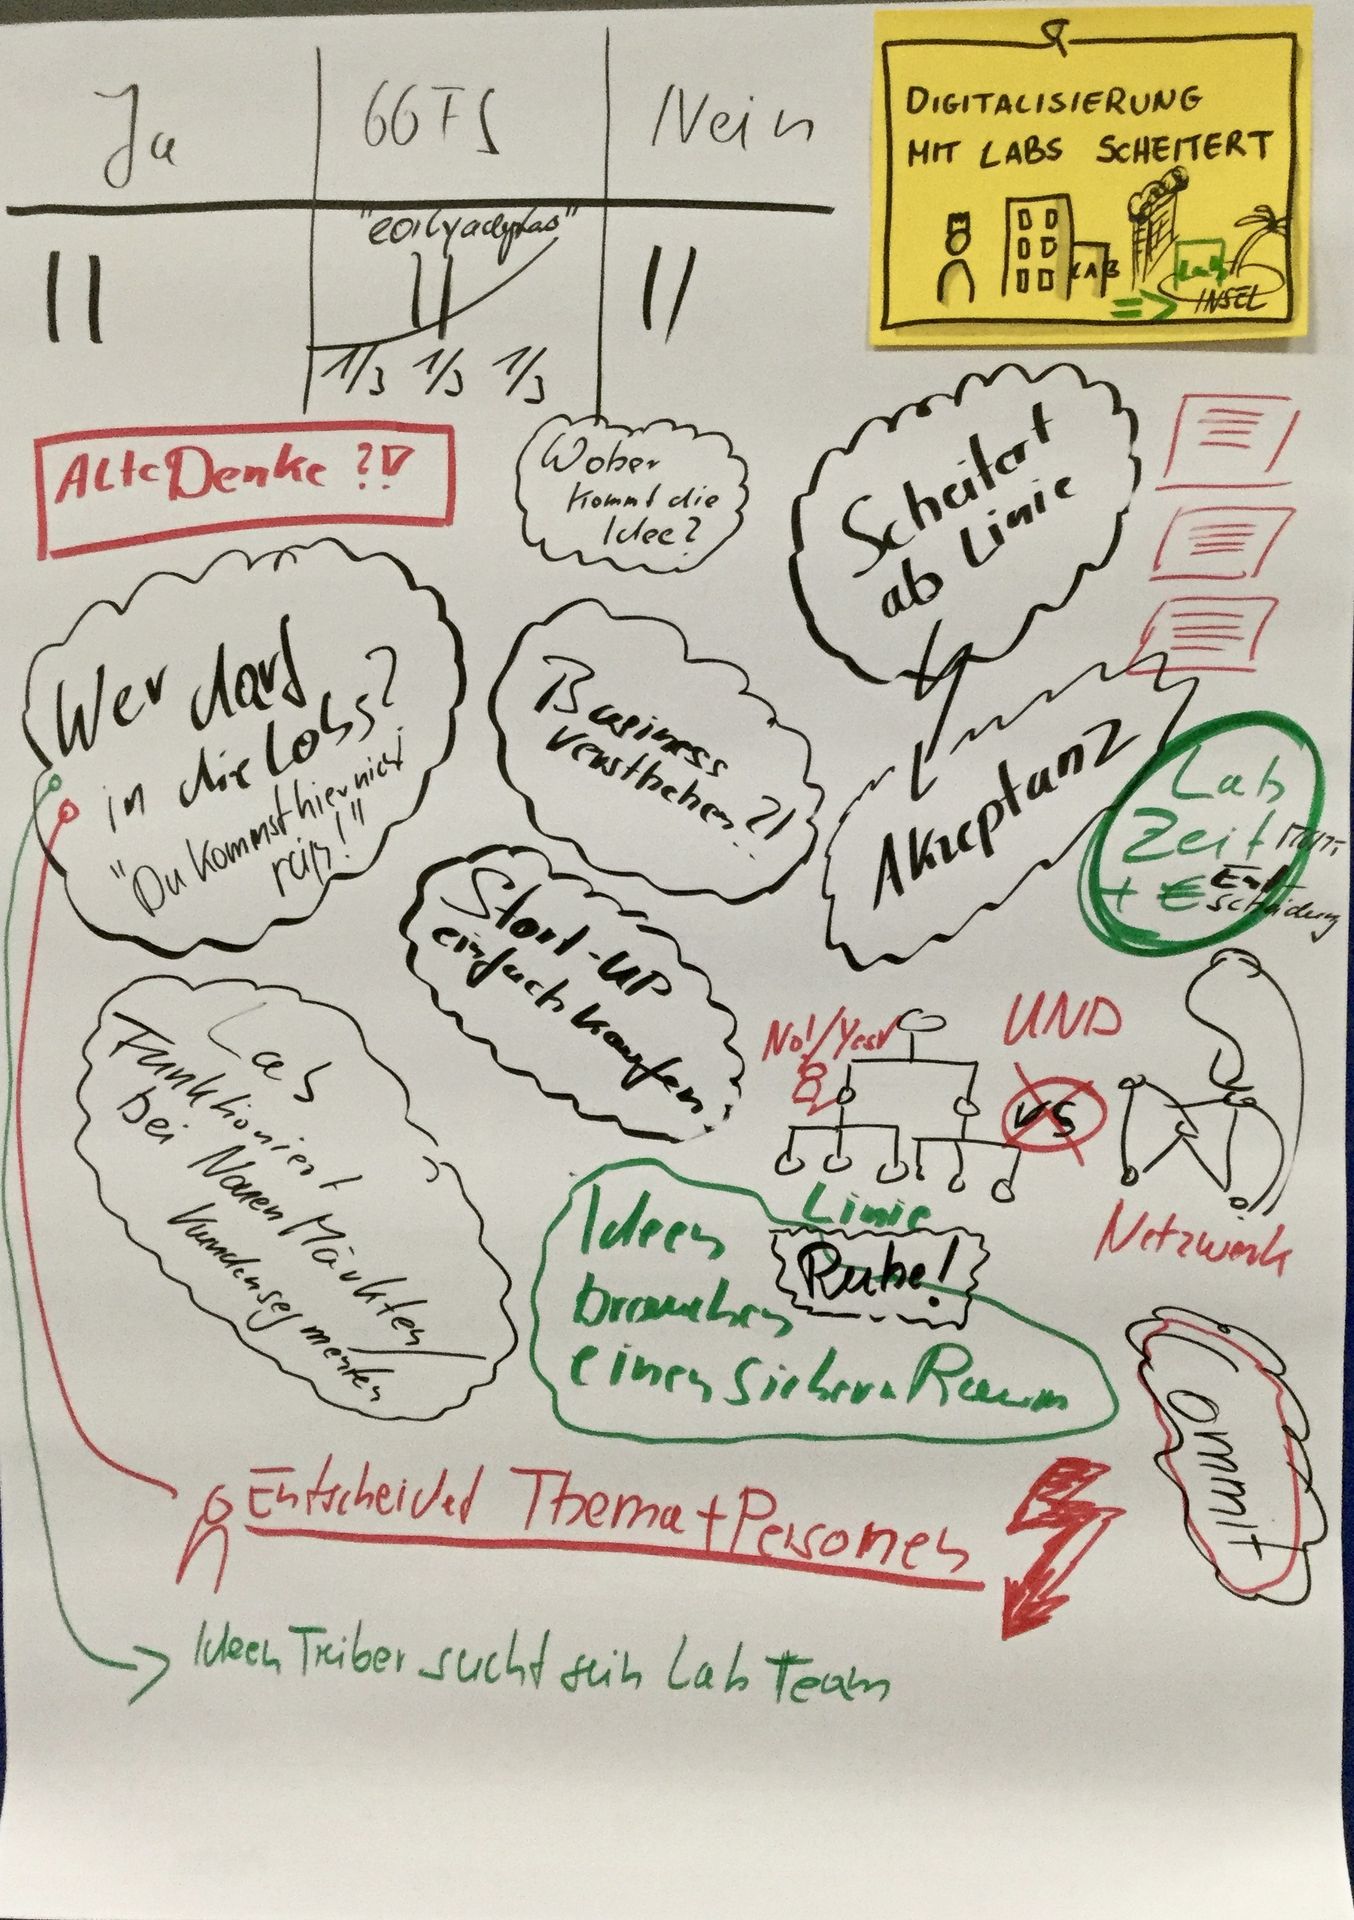 Ja
66FS
Nein
1/3 1/3 1/3
DIGITALISIERUNG
MIT LABS SCHEITERT
LAB
Lab
INSEL
Alte Denke ?!
Woher
kommt die
Idee?
Scheitert
ab Linie
Wer darf
in die Labs?
"Du kommst hier nicht
rein!"
Business
verstehen?!
Akzeptanz
Lab
Zeit
+ € Ent-
scheidung
Start-UP
einfach kaufen
Lab
Funktioniert
bei Neuen Märkten/
Kundensegmenten
No!/Yes!
UND
VS
Linie
Netzwerk
Ideen
brauchen
einen sichern Raum
Ruhe!
Commit
Entscheidet Thema + Personen
Ideen Treiber sucht sein Lab Team